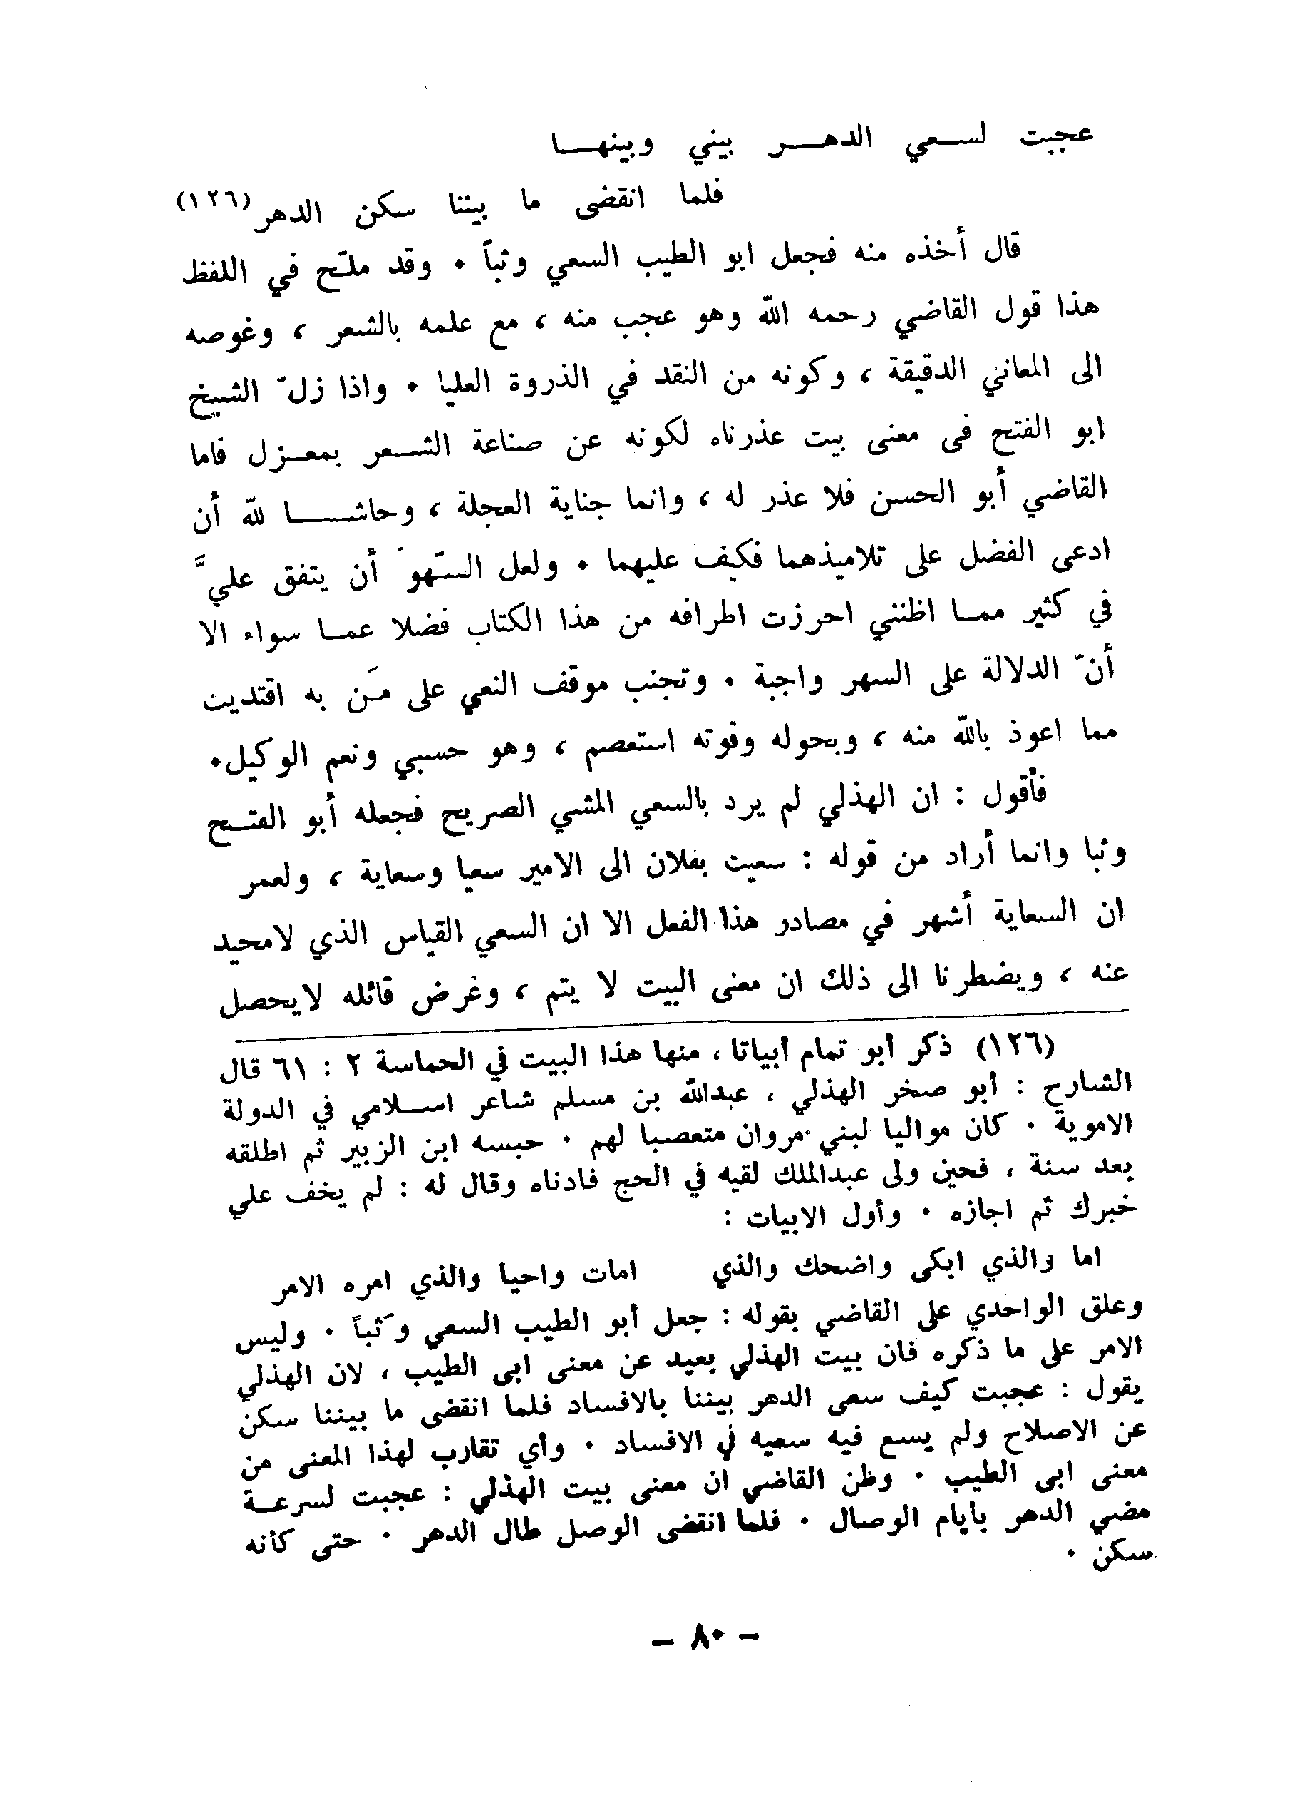 عجبت لسعي الدهر بيني وبينها
فلما انقضى ما بيننا سكن الدهر (١٢٦)
قال أخذه منه فجعل ابو الطيب السعي وثباً ٠ وقد ملّح في اللفظ
هذا قول القاضي رحمه الله وهو عجب منه ، مع علمه بالشعر ، وغوصه
الى المعاني الدقيقة ، وكونه من النقد في الذروة العليا ٠ واذا زلّ الشيخ
ابو الفتح فى معنى بيت عذرناه لكونه عن صناعة الشعر بمعزل فاما
القاضي أبو الحسن فلا عذر له ، وانما جناية العجلة ، وحاشا لله أن
ادعى الفضل على تلاميذهما فكيف عليهما ٠ ولعل السّهو أن يتفق عليَّ
في كثير مما اظنني احرزت اطرافه من هذا الكتاب فضلا عما سواء الا
أنّ الدلالة على السهر واجبة ٠ وتجنب موقف النعي على مَن به اقتديت
مما اعوذ بالله منه ، وبحوله وقوته استعصم ، وهو حسبي ونعم الوكيل٠
فأقول : ان الهذلي لم يرد بالسعي المشي الصريح فجعله أبو الفتح
وثبا وانما أراد من قوله : سعيت بفلان الى الامير سعيا وسعاية ، ولعمر
ان السعاية أشهر في مصادر هذا الفعل الا ان السعي القياس الذي لامحيد
عنه ، ويضطرنا الى ذلك ان معنى البيت لا يتم ، وغرض قائله لايحصل
(١٢٦) ذكر أبو تمام أبياتا ، منها هذا البيت في الحماسة ٢ : ٦١ قال
الشارح : أبو صخر الهذلي ، عبدالله بن مسلم شاعر اسلامي في الدولة
الاموية ٠ كان مواليا لبني مروان متعصبا لهم ٠ حبسه ابن الزبير ثم اطلقه
بعد سنة ، فحين ولى عبدالملك لقيه في الحج فادناه وقال له : لم يخف علي
خبرك ثم اجازه ٠ وأول الابيات :
اما والذي ابكى واضحك والذي امات واحيا والذي امره الامر
وعلق الواحدي على القاضي بقوله : جعل أبو الطيب السعي وَثباً ٠ وليس
الامر على ما ذكره فان بيت الهذلي بعيد عن معنى ابى الطيب ، لان الهذلي
يقول : عجبت كيف سعى الدهر بيننا بالافساد فلما انقضى ما بيننا سكن
عن الاصلاح ولم يسع فيه سعيه في الافساد ٠ وأي تقارب لهذا المعنى من
معنى ابى الطيب ٠ وظن القاضي ان معنى بيت الهذلي : عجبت لسرعة
مضي الدهر بايام الوصال ٠ فلما انقضى الوصل طال الدهر ٠ حتى كأنه
سكن ٠
— ٨٠ —